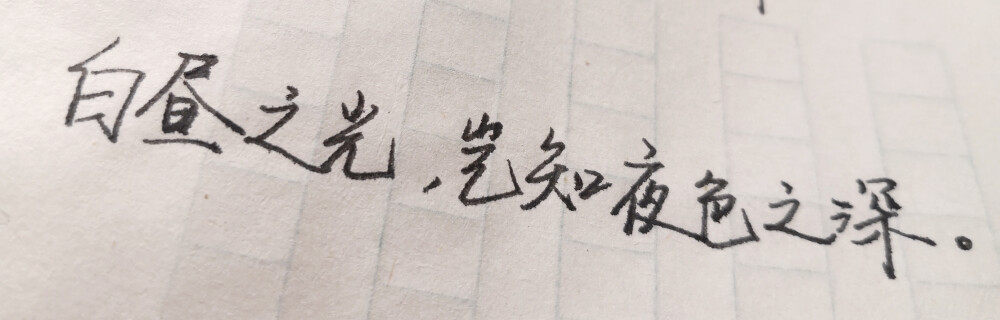 白昼之光，岂知夜色之深。